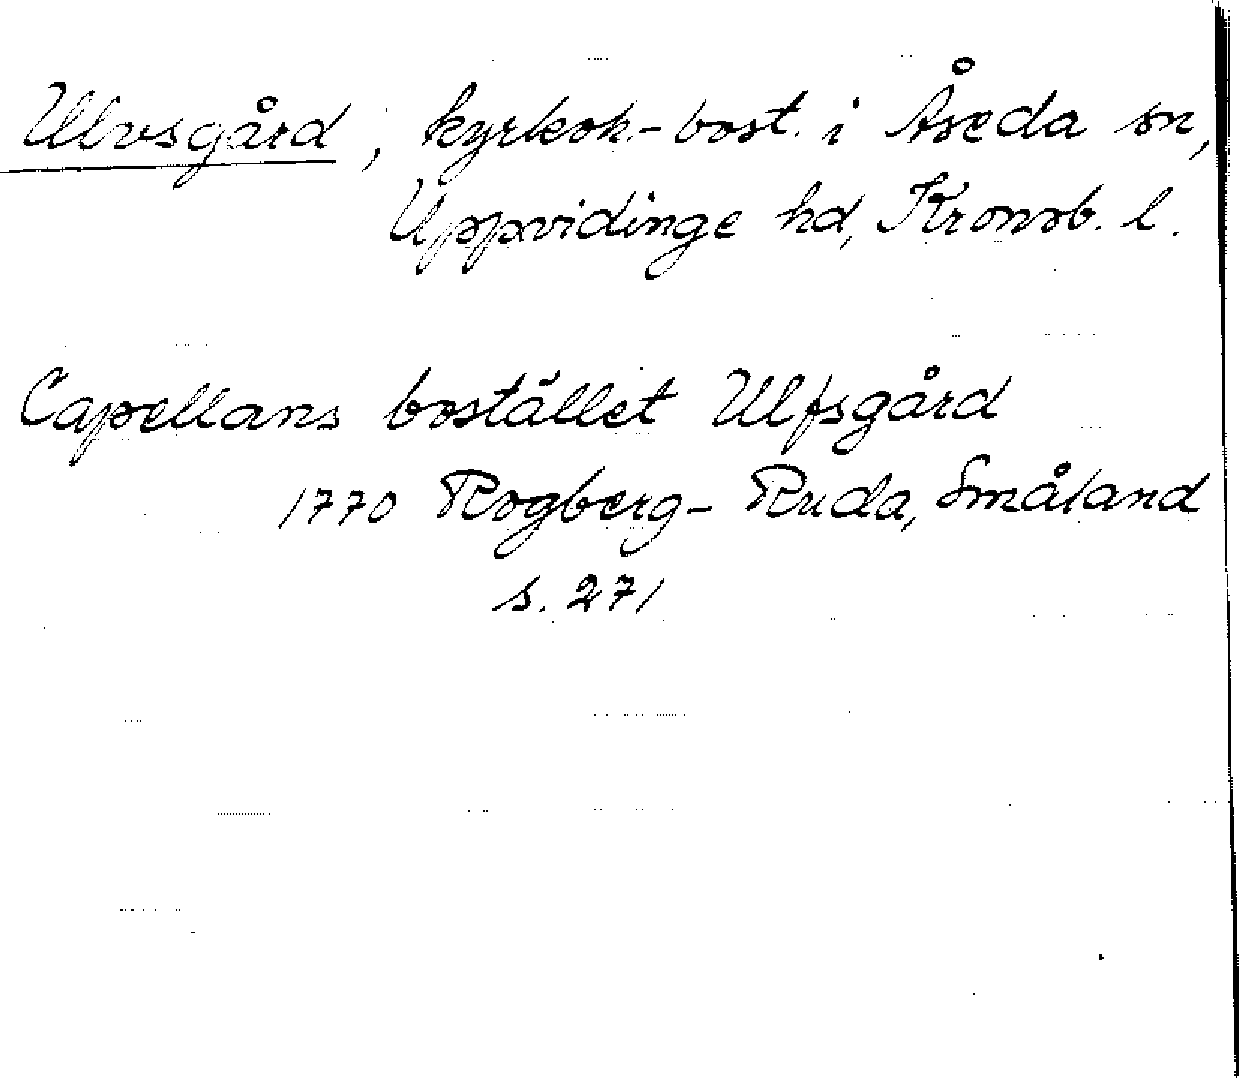 Ulvsgård, kyrkoh.-bost. i Åseda sn,
Uppvidinge hd, Kronob. l.
Capellans bostället Ulfsgård
1770 Rogberg-Ruda, Småland
s. 271